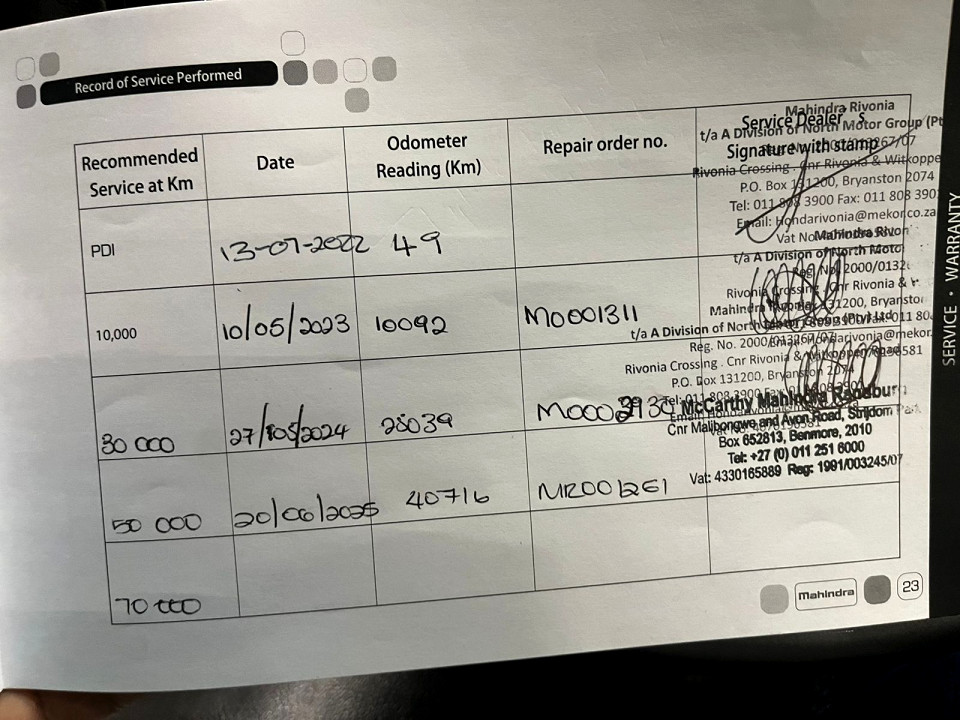 Record of Service Performed
Recommended Service at Km
Date
Odometer Reading (Km)
Repair order no.
Service Dealer's Signature with stamp
PDI
13-07-2022
49
10,000
10/05/2023
10092
M0001311
30 000
27/05/2024
28039
50 000
20/06/2025
40716
70 000
Mahindra Rivonia
t/a A Division of North Motor Group (Pt
Rivonia Crossing . Cnr Rivonia & Witkoppe
P.O. Box 131200, Bryanston 2074
Tel: 011 808 3900 Fax: 011 808 390
Email: Hondarivonia@mekor.co.za
Vat No
Mahindra Rivon
t/a A Division of North Moto
Reg. No. 2000/0132
Rivonia Crossing . Cnr Rivonia &
131200, Bryansto
t/a A Division of North Motor Group (Pty) Ltd
Reg. No. 2000/013267/07
Rivonia Crossing . Cnr Rivonia & Witkoppen Road
P.O. Box 131200, Bryanston 2074
Tel: 011 808 3900
McCarthy Mahindra Randbur
Cnr Malibongwe and Avon Road, Strijdom Park
Box 652813, Benmore, 2010
Tel: +27 (0) 011 251 6000
Vat: 4330165889 Reg: 1991/003245/07
mahindra
23
SERVICE • WARRANTY